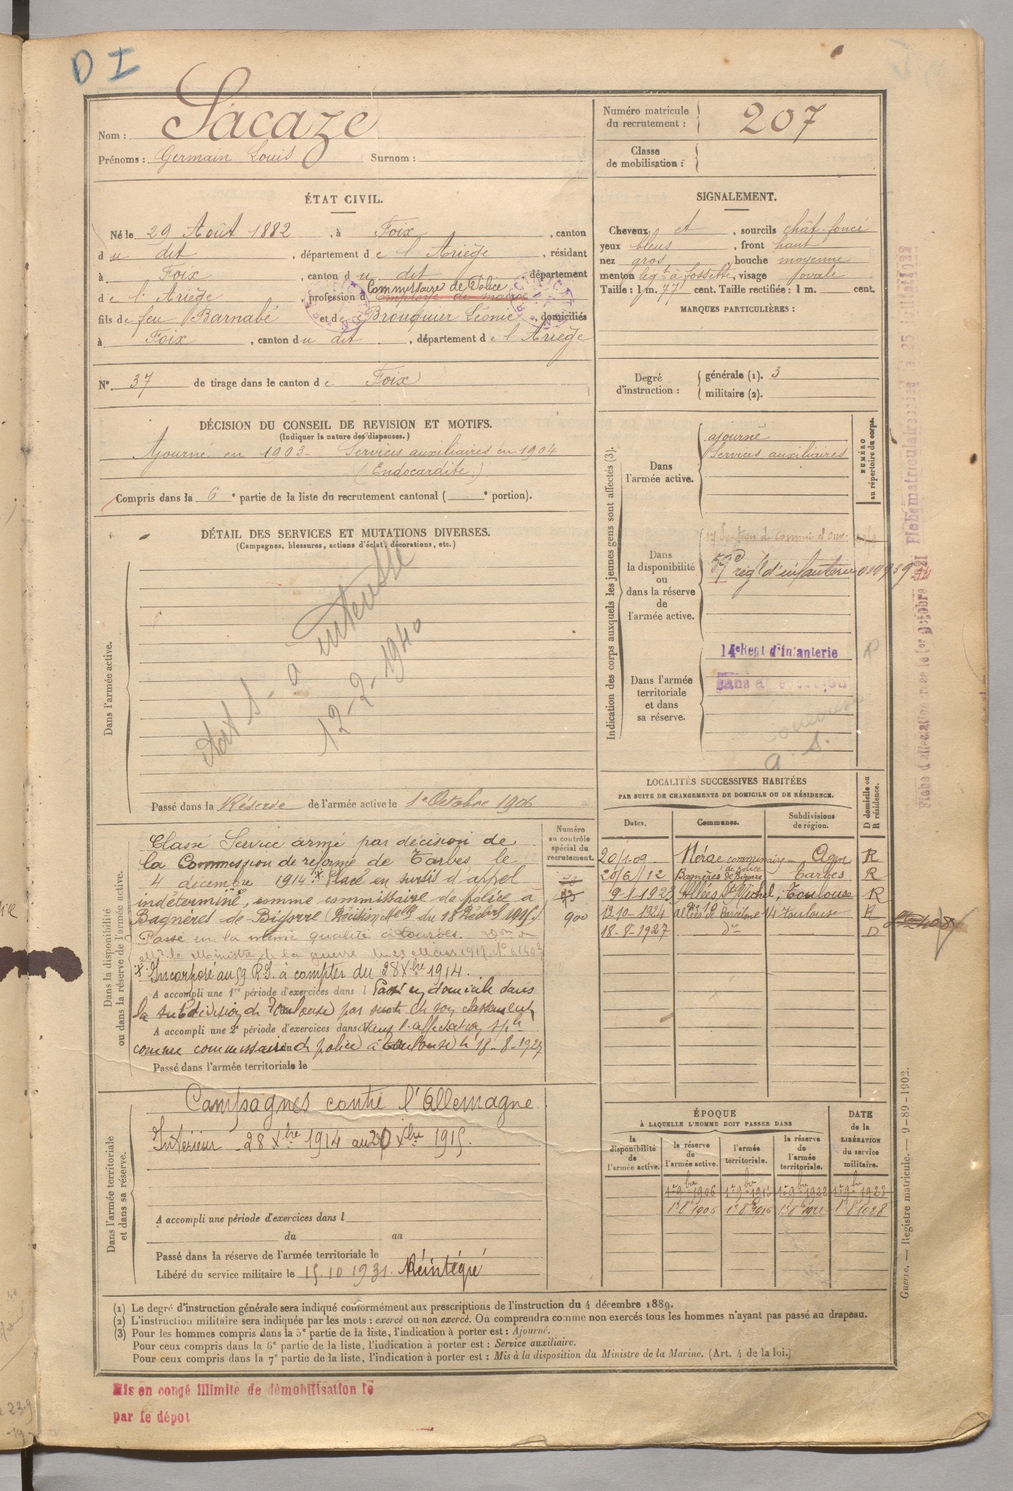 D I
Nom : Sacaze
Prénoms : Germain Louis Surnom :
Numéro matricule
du recrutement : 207
Classe
de mobilisation :
ÉTAT CIVIL.
Né le 29 Août 1882, à Foix, canton
du dit, département de l'Ariège, résidant
à Foix, canton du dit, département
Commissaire de Police
de l'Ariège, profession d
fils de feu Barnabé et de Brouquier Léonie, domiciliés
à Foix, canton du dit, département de l'Ariège
N° 37 de tirage dans le canton de Foix
SIGNALEMENT.
Cheveux et, sourcils chât. foncé
yeux bleus, front haut
nez gros, bouche moyenne
menton à fossette, visage ovale
Taille : 1 m. 77 cent. Taille rectifiée : 1 m. cent.
MARQUES PARTICULIÈRES :
Degré
d'instruction :
générale (1). 3
militaire (2).
DÉCISION DU CONSEIL DE REVISION ET MOTIFS.
(Indiquer la nature des dispenses.)
Ajourné en 1903 - Services auxiliaires en 1904
(Endocardite)
Compris dans la 6e partie de la liste du recrutement cantonal ( e portion).
DÉTAIL DES SERVICES ET MUTATIONS DIVERSES.
(Campagnes, blessures, actions d'éclat, décorations, etc.)
Dans l'armée active.
12-2-1940
Passé dans la Réserve de l'armée active le 1er Octobre 1906
Indication des corps auxquels les jeunes gens sont affectés (3).
NUMÉRO
au répertoire du corps.
Dans
l'armée active.
ajourné
Services auxiliaires
Dans
la disponibilité
ou
dans la réserve
de
l'armée active.
59e régt d'infanterie
Dans l'armée
territoriale
et dans
sa réserve.
14e Regt d'Infanterie
LOCALITÉS SUCCESSIVES HABITÉES
PAR SUITE DE CHANGEMENTS DE DOMICILE OU DE RÉSIDENCE.
Dates. Communes. Subdivisions
de région. D domicile ou
R résidence.
20/1-09 Nérac Agen R
20/6/12 Bagnères de Bigorre Tarbes R
9-1-1923 Allées St Michel, Toulouse R
13-10-1924 allées de Barcelone 14 Toulouse R
18-8-1927 do D
Dans la disponibilité
ou dans la réserve de l'armée active.
Numéro
au contrôle
spécial du
recrutement.
900
Classé Service armé par décision de
la Commission de réforme de Tarbes le
4 décembre 1914. x Placé en sursis d'appel
indéterminé, comme commissaire de police à
Bagnères-de-Bigorre
Passé en la même qualité à Lourdes.
x Incorporé au 59 R.I. à compter du 28 Xbre 1914.
A accompli une 1re période d'exercices dans l Passé en domicile dans
la subdivision de Toulouse par suite de son classement
A accompli une 2e période d'exercices dans dans l'affectation sple
comme commissaire de police à Toulouse le 18-8-1927
Passé dans l'armée territoriale le
Dans l'armée territoriale
et dans sa réserve.
Campagnes contre l'Allemagne
Intérieur - 28 Xbre 1914 au 20 Xbre 1915.
A accompli une période d'exercices dans l
du au
Passé dans la réserve de l'armée territoriale le
Libéré du service militaire le 15.10.1931. Réintégré
ÉPOQUE
À LAQUELLE L'HOMME DOIT PASSER DANS
la
disponibilité
de
l'armée active.
la réserve
de
l'armée active.
l'armée
territoriale.
la réserve
de
l'armée
territoriale.
DATE
de la
LIBÉRATION
du service
militaire.
(1) Le degré d'instruction générale sera indiqué conformément aux prescriptions de l'instruction du 4 décembre 1889.
(2) L'instruction militaire sera indiquée par les mots : exercé ou non exercé. On comprendra comme non exercés tous les hommes n'ayant pas passé au drapeau.
(3) Pour les hommes compris dans la 5e partie de la liste, l'indication à porter est : Ajourné.
Pour ceux compris dans la 6e partie de la liste, l'indication à porter est : Service auxiliaire.
Pour ceux compris dans la 7e partie de la liste, l'indication à porter est : Mis à la disposition du Ministre de la Marine. (Art. 4 de la loi.)
Guerre. — Registre matricule. — 9-89-1902.
Mis en congé illimité de démobilisation le
par le dépôt